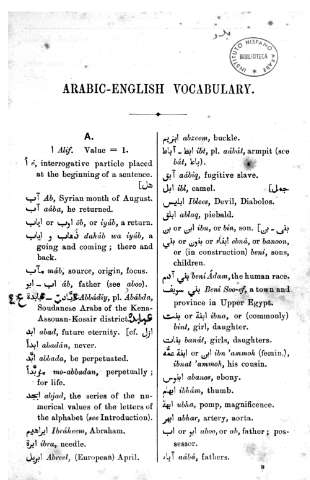 INSTITUTO HISPANO ARABE
BIBLIOTECA
ARABIC-ENGLISH VOCABULARY.
A.
ا Alif. Value = 1.
أ, interrogative particle placed
at the beginning of a sentence.
[هل
آب Ab, Syrian month of August.
آب aába, he returned.
أوب or إياب ób, or iyáb, a return.
ذهاب و إياب daháb wa iyáb, a
going and coming; there and
back.
مآب máb, source, origin, focus.
أب - ابو áb, father (see aboo).
Abbádiy, pl. Abábda,
Soudanese Arabs of the Kena-
Assouan-Kosair district.
ابد abad, future eternity. [cf. ازل
أبداً abadán, never.
أبّد abbada, be perpetuated.
مؤبداً mo-abbadan, perpetually;
for life.
ابجد abjad, the series of the nu-
merical values of the letters of
the alphabet (see Introduction).
ابراهيم Ibráheem, Abraham.
ابرة ibra, needle.
ابريل Abreel, (European) April.
ابزيم abzeem, buckle.
ابط - آباط ibt, pl. aábát, armpit (see
bát, باط).
آبق aábiq, fugitive slave.
ابل ibl, camel. [جمل
ابليس Iblees, Devil, Diabolos.
ابلق ablaq, piebald.
بن or ابن ibn, or bin, son. [بني - بنون
بني or بنون or ابناء ebná, or banoon,
or (in construction) beni, sons,
children.
بني آدم beni Adam, the human race.
بني سويف Beni Soo-ef, a town and
province in Upper Egypt.
بنت or ابنة ibna, or (commonly)
bint, girl, daughter.
بنات banát, girls, daughters.
ابن عمه or ابنة عمه ibn 'ammoh (femin.),
ibnat 'ammoh, his cousin.
ابنوس abanos, ebony.
ابهام ibhám, thumb.
ابهة ubha, pomp, magnificence.
ابهر abhar, artery, aorta.
اب or ابو aboo, or ab, father; pos-
sessor.
آباء aábá, fathers.
B